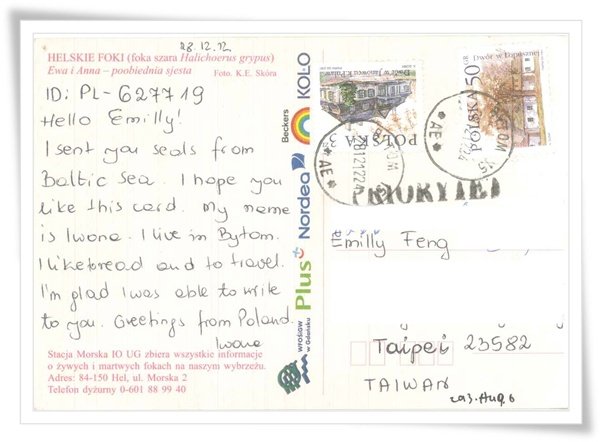 28.12.12
HELSKIE FOKI (foka szara Halichoerus grypus)
Ewa i Anna – poobiednia sjesta Foto. K.E. Skóra
ID: PL-627719
Hello Emilly!
I sent you seals from
Baltic Sea. I hope you
like this card. My name
is Iwona. I live in Bytom.
I like bread and to travel.
I'm glad I was able to write
to you. Greetings from Poland.
Iwona
Stacja Morska IO UG zbiera wszystkie informacje
o żywych i martwych fokach na naszym wybrzeżu.
Adres: 84-150 Hel, ul. Morska 2
Telefon dyżurny 0-601 88 99 40
WFOŚiGW
w Gdańsku
Plus
Nordea
Beckers
KOŁO
POLSKA
POLSKA 50
Dwór w Łopusznej
AE
AE
PRIORYTET
Emilly Feng
Taipei 23582
TAIWAN